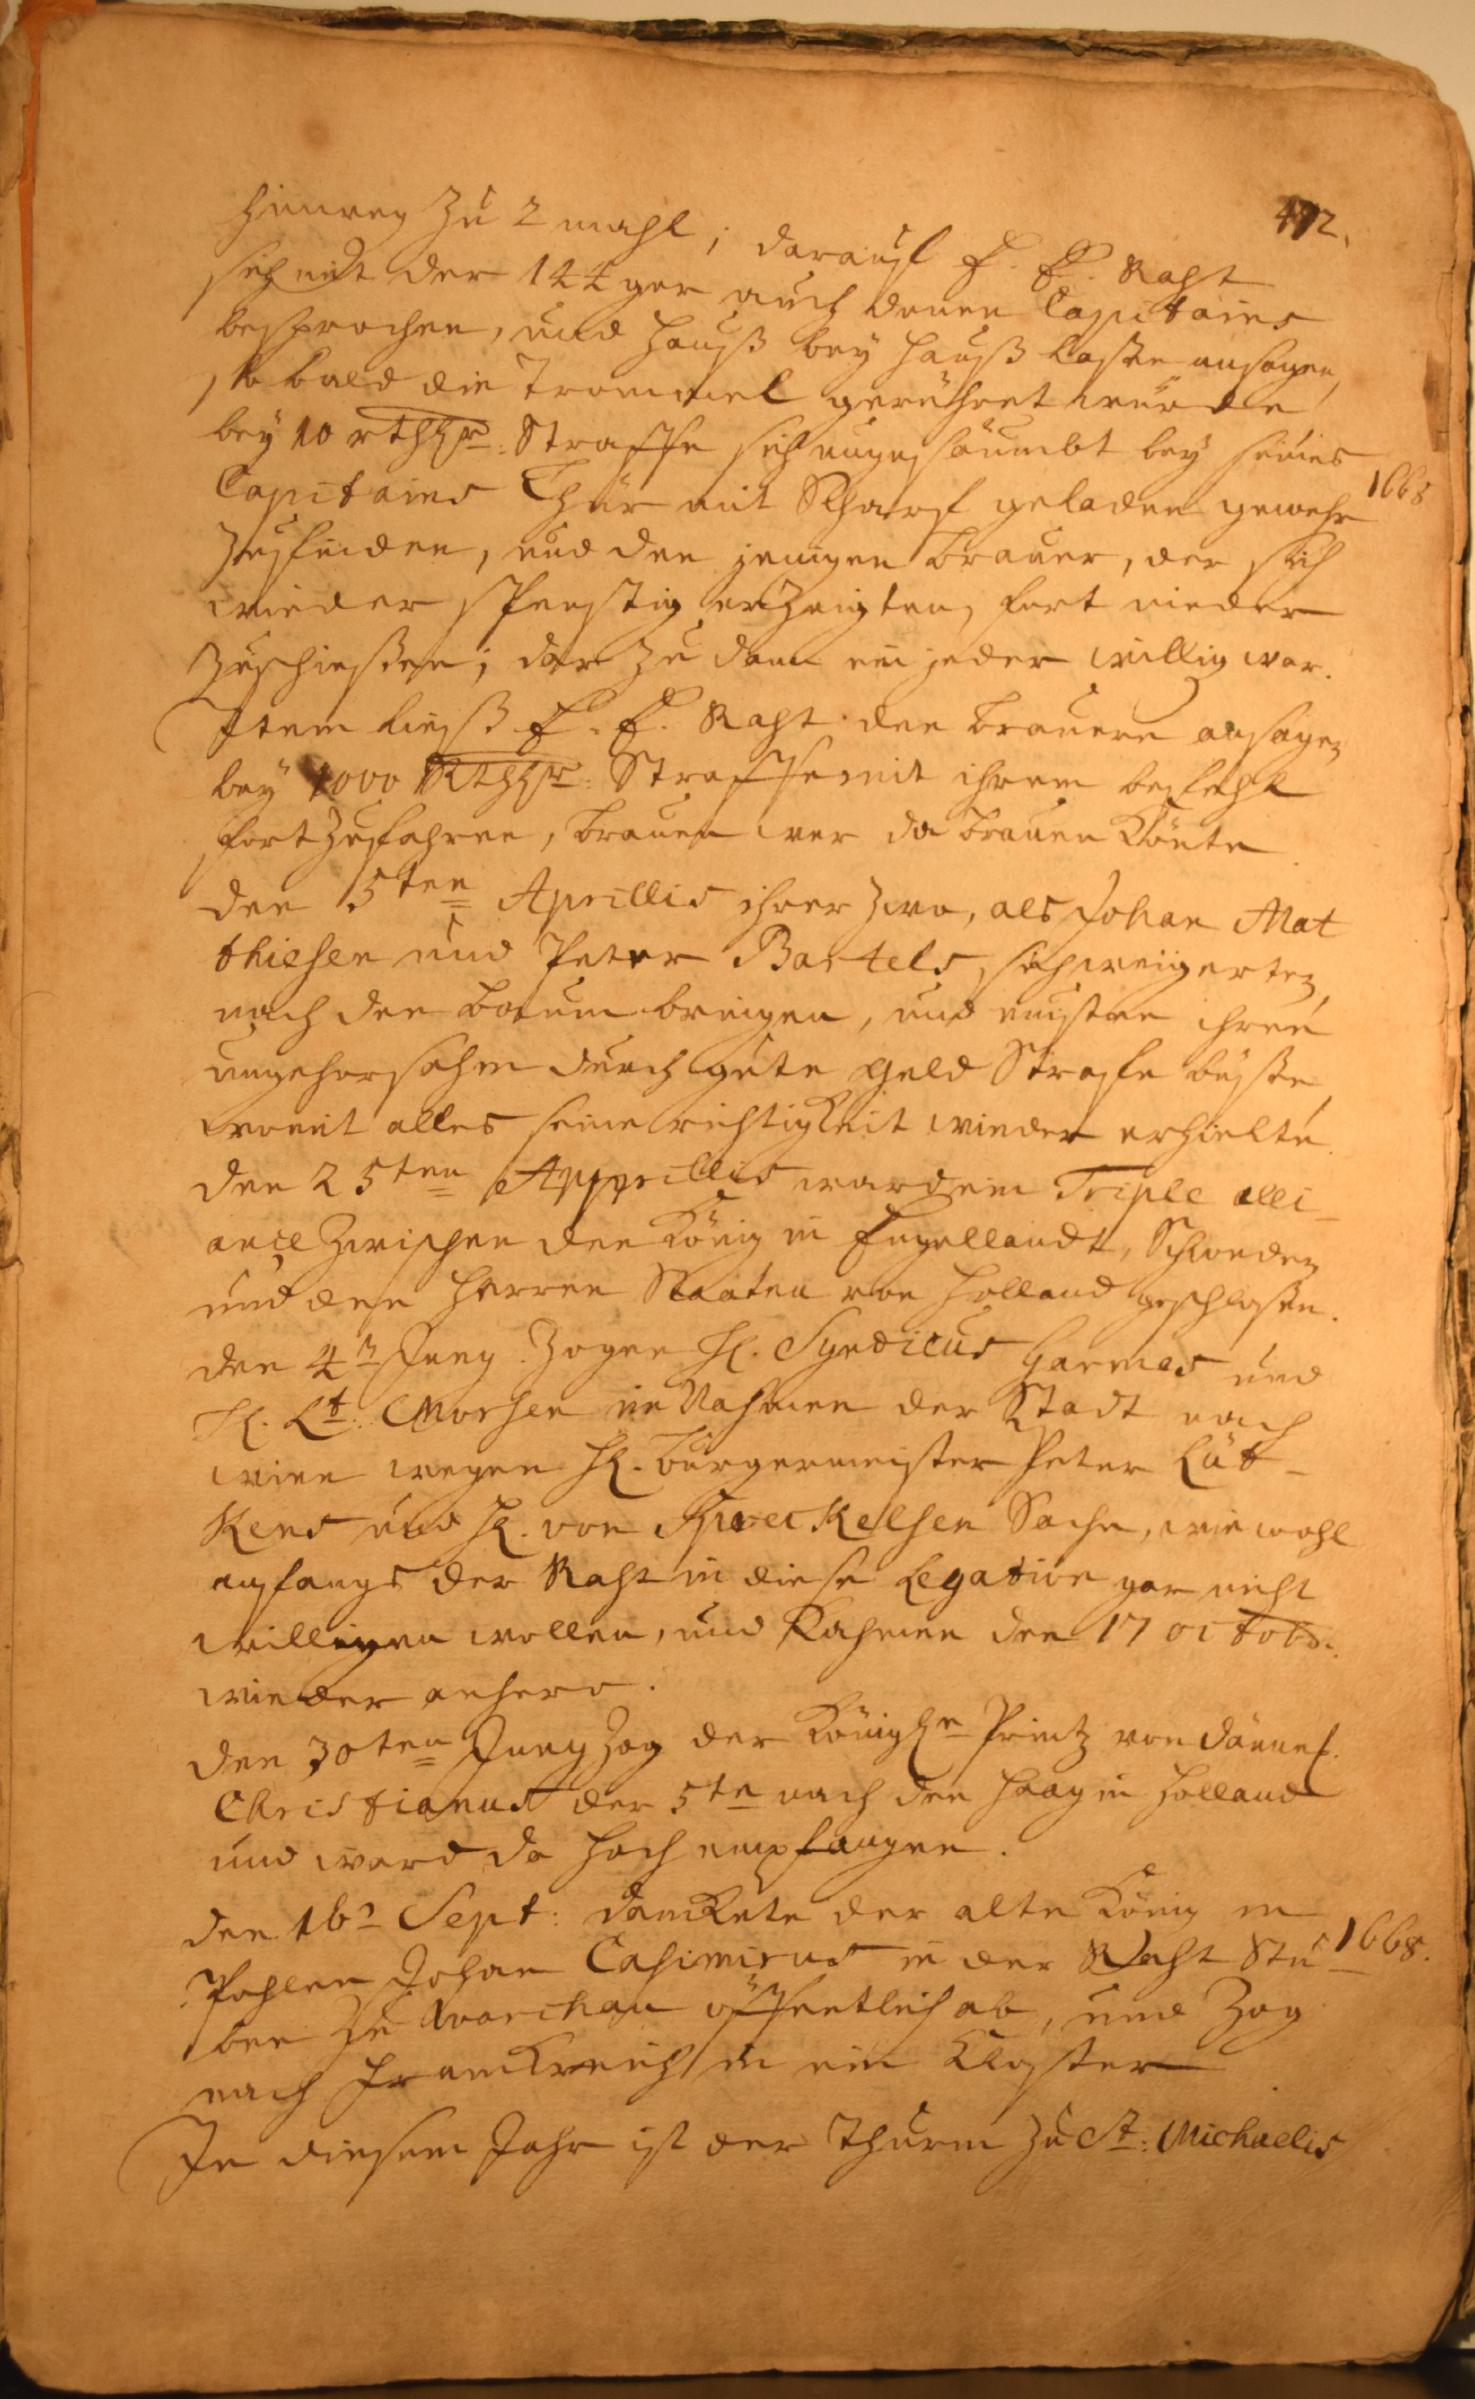 472.
hinweg zu 2 mahl; darauff E. E. Raht
sich mit der 144ger auch denen Capitains
besprochen, und Hauß bey Hauß laßen ansagen,
so bald die Trommel gerühret würde
bey 10 rthlr: Straffe sich ungesäumbt bey seines
Capitains Thür mit Scharf geladen gewehr
1668
zufinden, und den jenigen Brauer, der sich
wieder spenstig erzeigten, fort nieder
zuschießen; dar zu dann ein jeder willig war.
Item ließ E. E. Raht den Brauern ansagen
bey 1000 Rthlr: Straffe mit ihrem befehl
fort zufahren, Brauen wer da Brauen könte
den 5ten Aprillis ihrer zwo, als Johan Mat
thiesen und Peter Bartels, sich weigerten
nach den Baum bringen, und musten ihren
ungehorsahm durch gute geld Strafe büßen
womit alles seine richtigkeit wieder erhielte.
den 25ten Apprillis ward ein Triple alli-
ance zwischen den König in Engellandt, Schweden
und den Herren Staaten von Holland geschloßen.
den 4n Juny. Zogen H. Syndicus Garmes und
H. Lt: Morsen in Nahmen der Stadt nach
wien wegen H. Bürgermeister Peter Lüt-
kens und H. von Spreckelsen Sache, wie wohl
anfangs der Raht in diese Legation gar nicht
willigen wollen, und Kahmen den 17 octobr.
wieder anhero.
den 30ten Juny zog der Königln Printz von Dännef.
Christianus der 5te nach den Haag in Holland
und ward da hoch empfangen.
den 16n Sept: danckete der alte König in
Pohlen Johan Casimirus in der Raht Stu-
1668.
ben zu Warschau öffentlich ab, und Zog
nach Franckreich in ein Kloster
In diesem Jahr ist der Thurm zu St: Michaelis